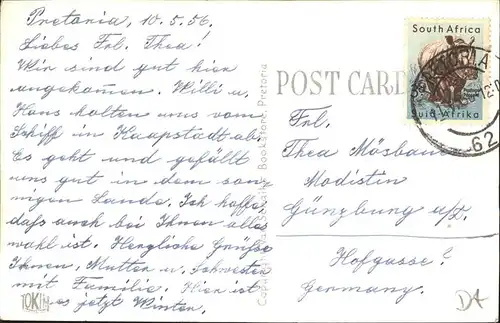 Pretoria, 10.5.56.
Liebes Frl. Thea!
Wir sind gut hier
angekommen. Willi u.
Hans holten uns vom
Schiff in Kaapstadt ab.
Es geht und gefällt
uns gut in dem son-
nigen Lande. Ich hoffe,
daß auch bei Ihnen alles
wohl ist. Herzliche Grüße
Ihnen, Mutter u. Schwester
mit Familie. Hier ist
es jetzt Winter.
POST CARD
South Africa
Suid Afrika
PRETORIA
62
Frl.
Thea Mösbau
Modistin
Günzburg a/D.
Hofgasse?
Germany.
Bookstore, Pretoria
DA